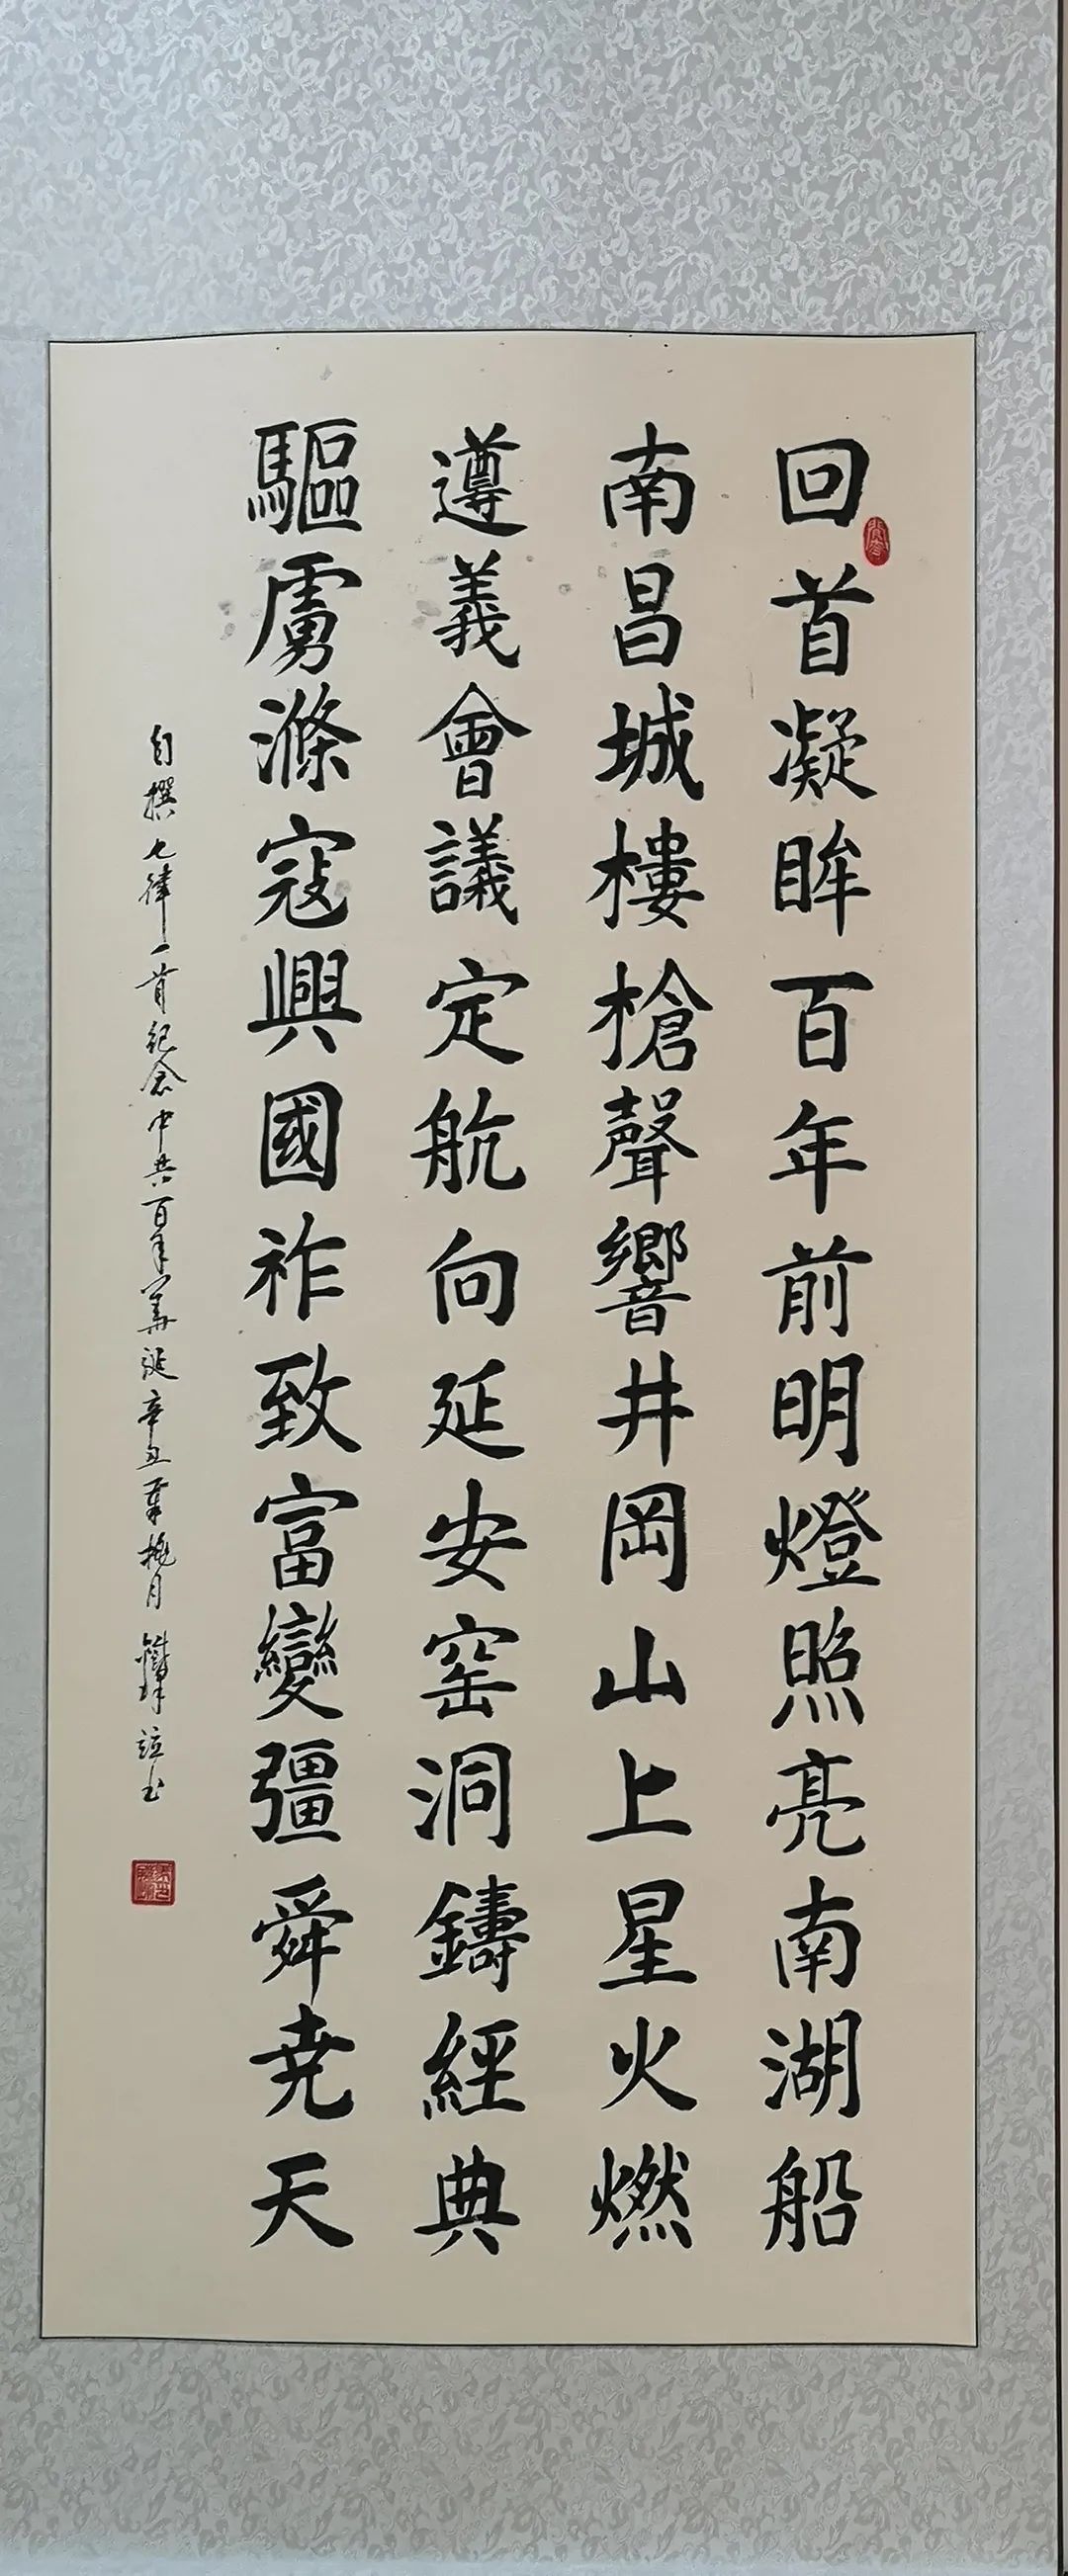 回首凝眸百年前明燈照亮南湖船
南昌城樓槍聲響井岡山上星火燃
遵義會議定航向延安窑洞鑄經典
驅虜滌寇興國祚致富變彊舜尭天
自撰七律一首紀念中共百年華誕辛丑年桃月